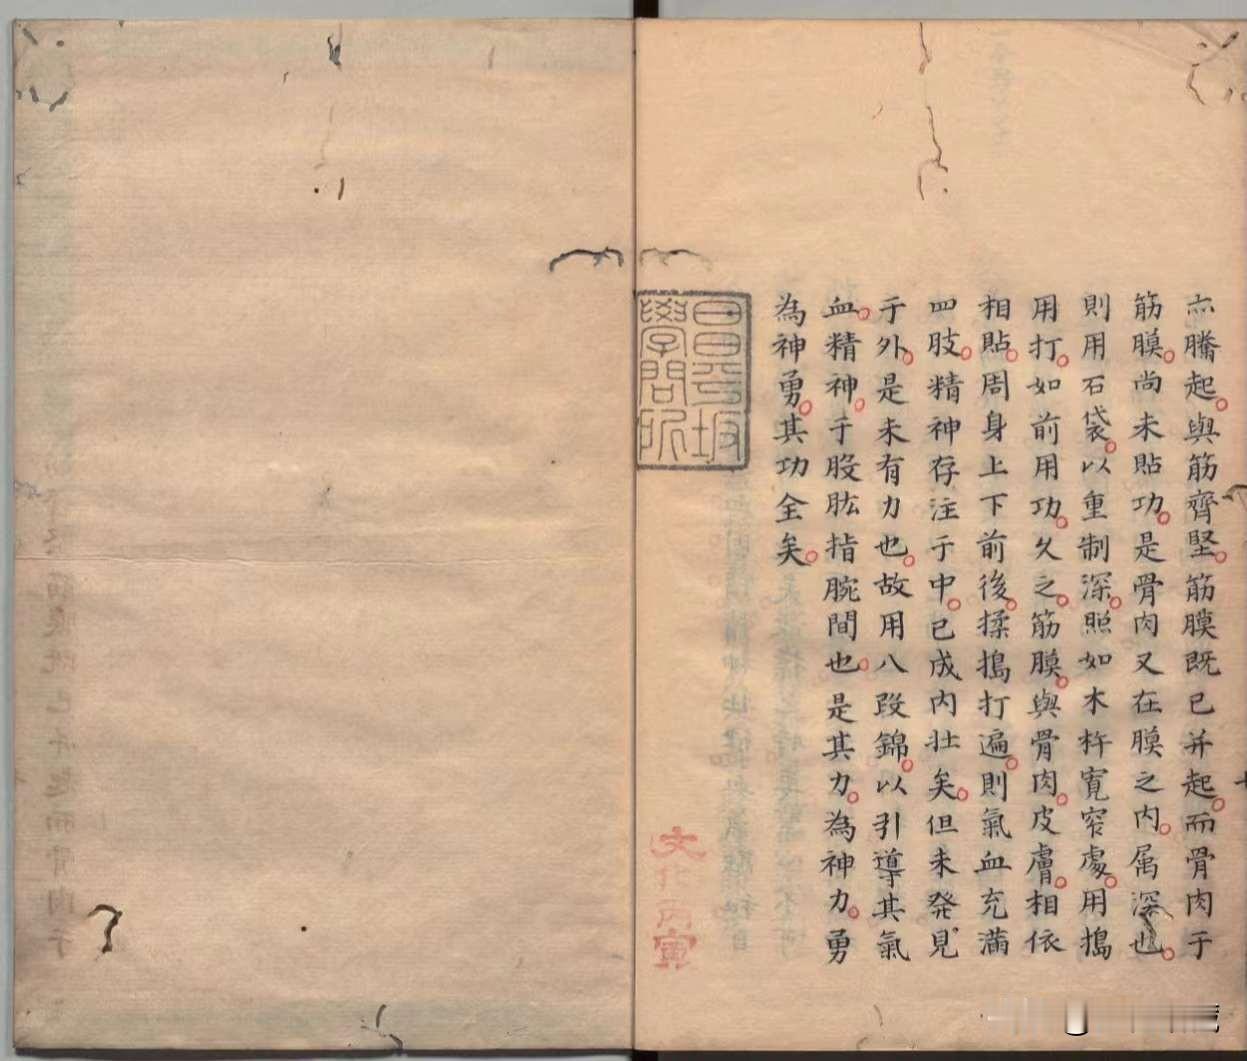 亦騰起與筋齊堅筋膜既已并起而骨肉于
筋膜尚未貼功是骨肉又在膜之内属深也
則用石袋以重制深照如木杵寬窄處用搗
用打如前用功久之筋膜與骨肉皮膚相依
相貼周身上下前後揉搗打遍則氣血充滿
四肢精神存注于中已成内壯矣但未發見
于外是未有力也故用八段錦以引導其氣
血精神于股肱指腕間也是其力為神力勇
為神勇其功全矣
昌平坂
學問所
文化丙寅